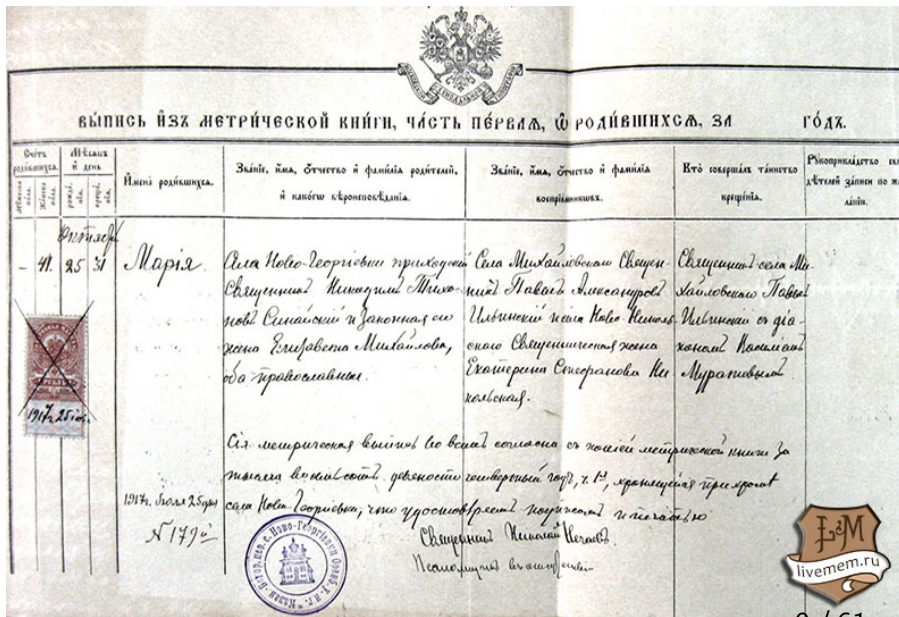 ВЫПИСЬ ИЗЪ МЕТРИЧЕСКОЙ КНИГИ, ЧАСТЬ ПЕРВАЯ, Ѡ РОДИВШИХСЯ, ЗА ГОДЪ.
Счетъ родившихся.
Мѣсяцъ и день
Имена родившихся.
Званіе, имя, отчество и фамилія родителей,
и какогѡ вѣроисповѣданія.
Званіе, имя, отчество и фамилія
воспріемниковъ.
Кто совершалъ таинство
крещенія.
Рукоприкладство
дѣтелей записи по
Октябрь
- 41. 25 31
Марія.
Села Ново-Георгіевки приходскій
Священникъ Никодимъ Тихо-
новъ Синайскій и законная его
жена Елизавета Михайлова,
оба православные.
Села Михайловскаго Священ-
никъ Павелъ Александровъ
Ильинскій и села Ново-Николь-
скаго Священническая жена
Екатерина Стефанова Ни-
кольская.
Священникъ села Ми-
хайловскаго Павелъ
Ильинскій съ діа-
кономъ
Муратовымъ
1917 25
Сія метрическая выпись во всемъ согласна съ метрической книги за
тысяча восемьсотъ девяносто четвертый годъ, ч. 1я, хранящейся при
села Ново-Георгіевки, что удостовѣряемъ подписомъ и печатью
1917г. Іюля 25 дня
№ 179
Священникъ Николай
Псаломщикъ
livemem.ru